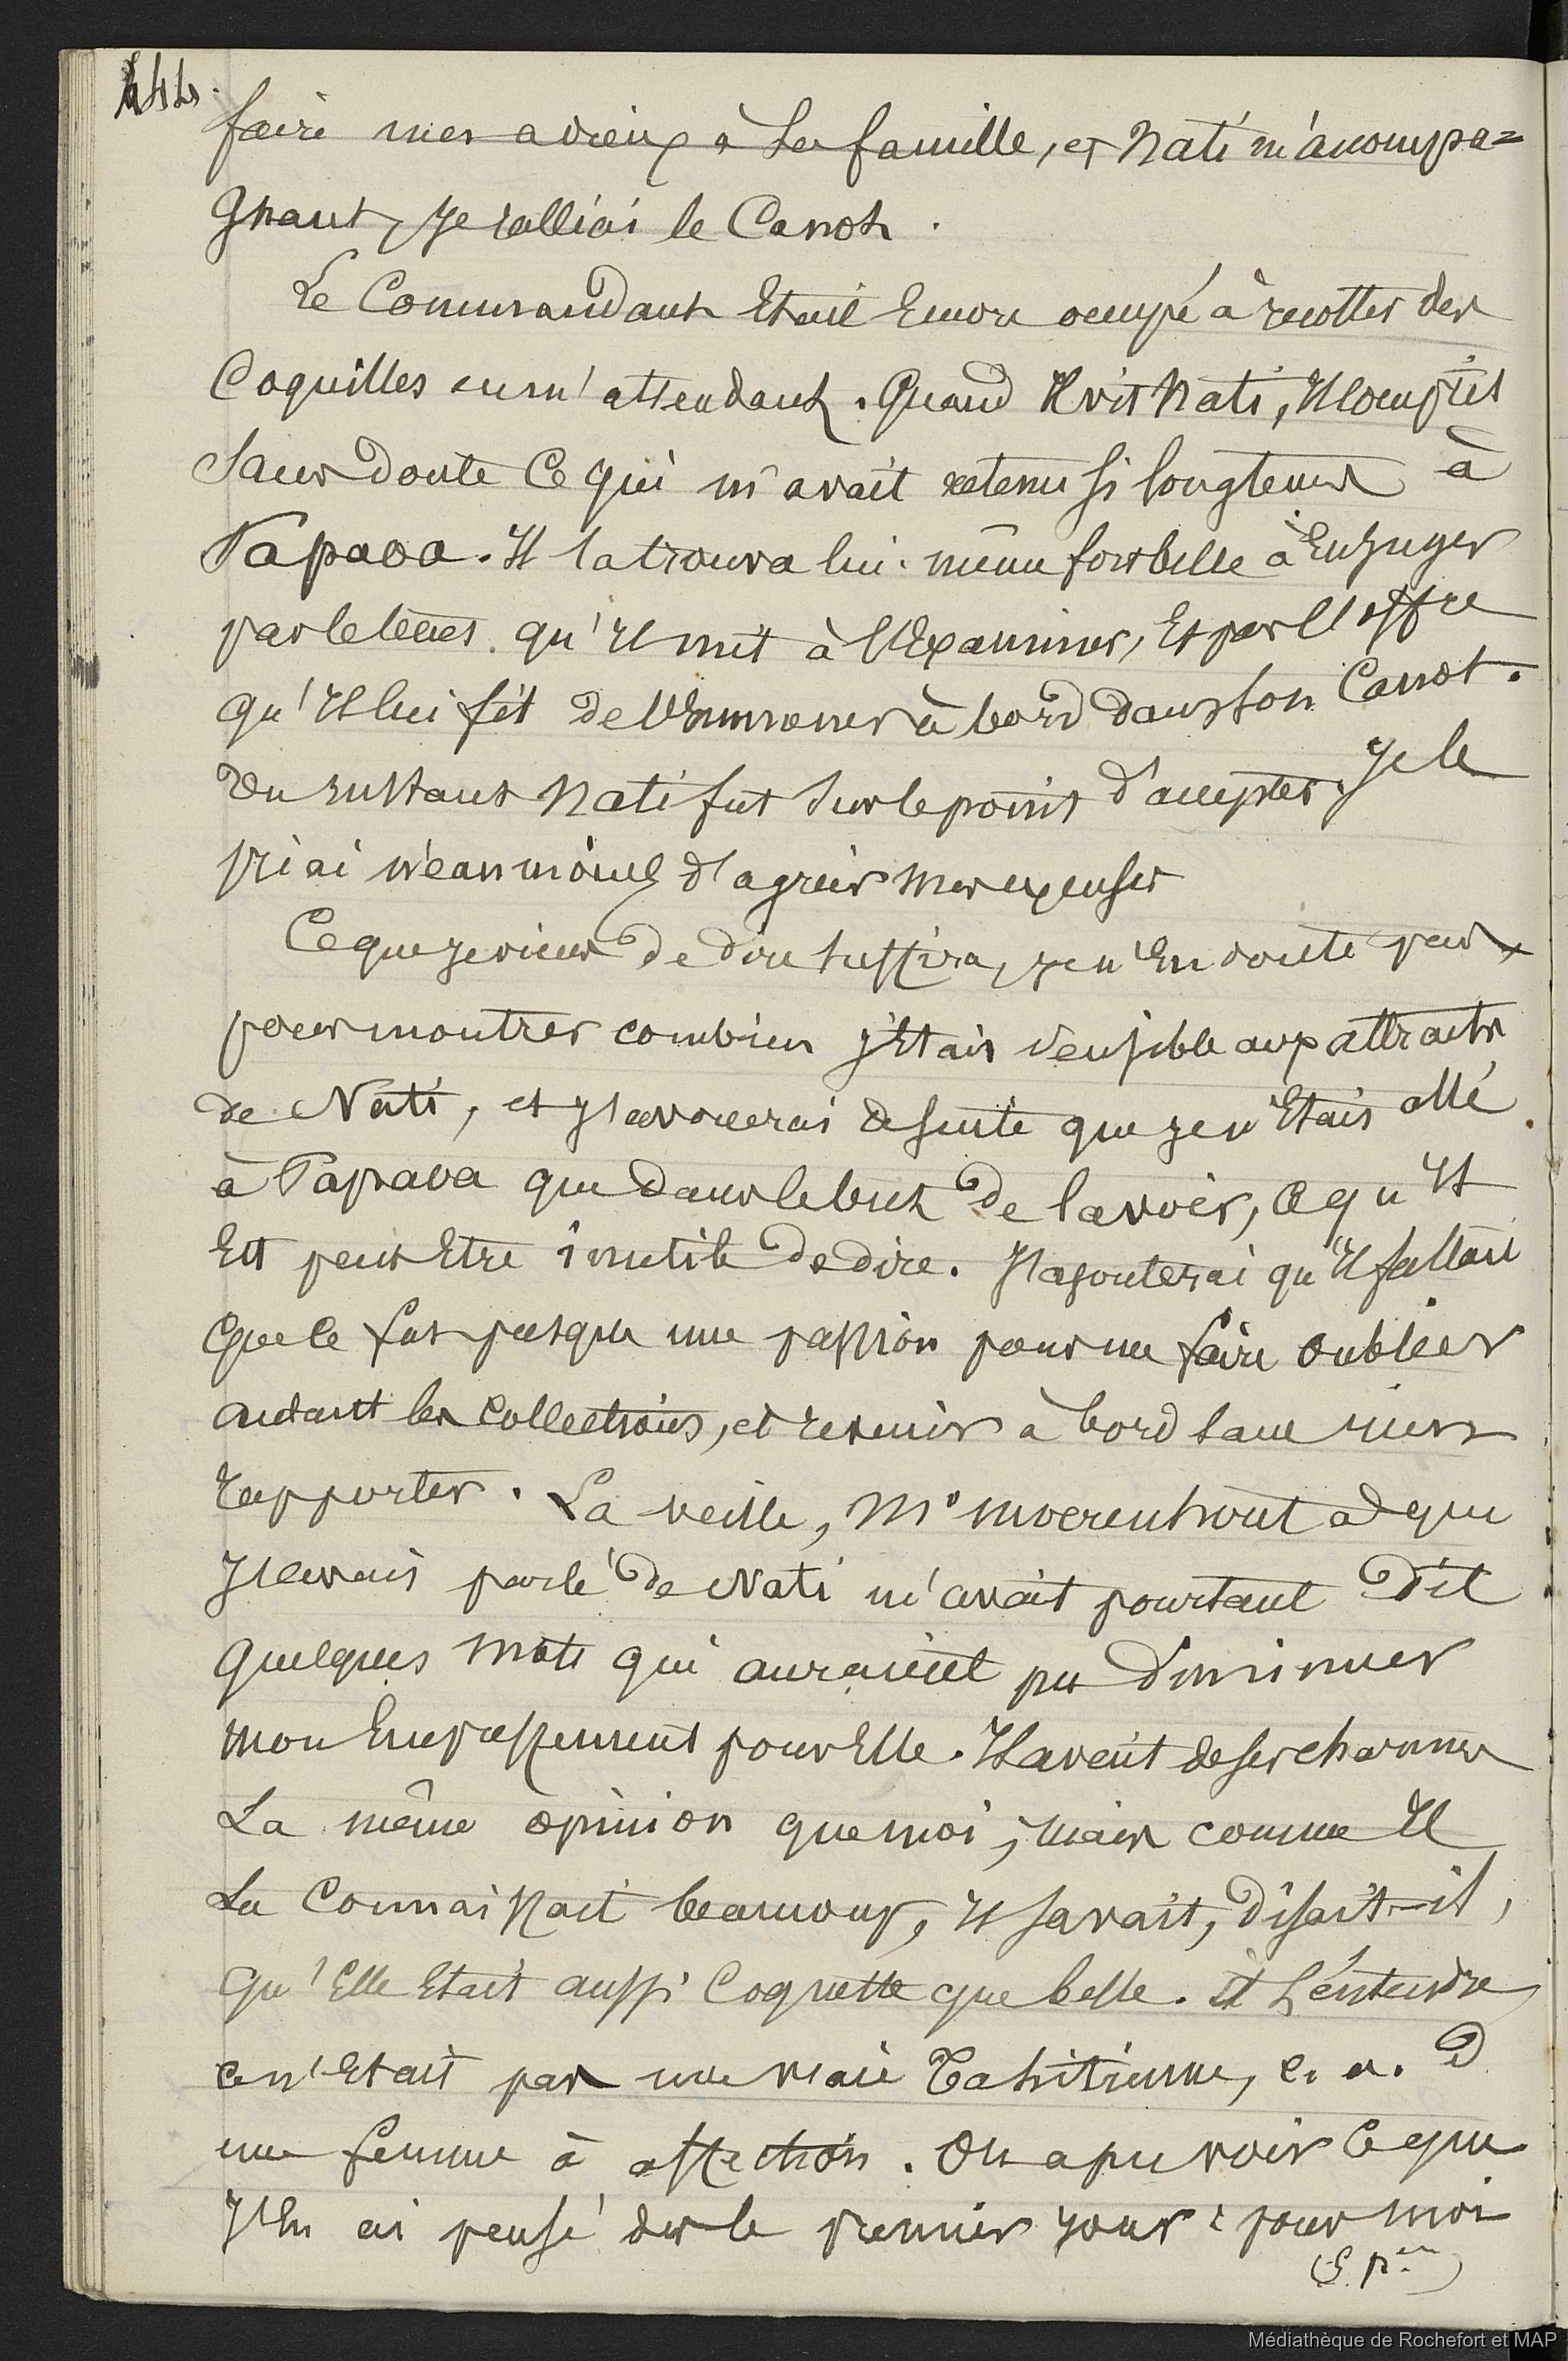 444.
faire mes adieux à sa famille, et Nati m'accompa=
gnant, je ralliai le Canot.
Le Commandant Etait Encore occupé à recolter des
Coquilles en m'attendant. Quand Il vit Nati, Il comprit
sans doute Ce qui m'avait retenu si longtems à
Papaoa. Il la trouva lui-même fort belle à En juger
par le tems qu'Il mit à l'Examiner, Et par l'offre
qu'Il lui fit de l'Emmener à bord dans son Canot.
Un instant Nati fut sur le point d'accepter. Je le
priai néanmoins d'agréer mes excuses
Ce que je viens de dire suffira, je n'En doute pas
pour montrer combien j'Etais sensible aux attraits
de Nati, et j'avouerai de suite que je n'Etais allé
à Papaoa que dans le but de la voir, ce qu'Il
Est peut Etre inutile de dire. J'ajouterai qu'Il fallait
que ce fut presque une passion pour me faire oublier
autant les Collections, et revenir à bord sans rien
rapporter. La veille, Mr Moerenhout à qui
J'avais parlé de Nati m'avait pourtant dit
quelques mots qui auraient pu diminuer
mon Empressement pour Elle. Il avait de ses charmes
La même opinion que moi, mais comme Il
La Connaissait beaucoup, Il savait, disait-il,
qu'Elle Etait aussi Coquette que belle. à L'entendre
ce n'Etait pas une vraie Tahitienne, c. a. d
une femme à affection. On a pu voir Ce que
J'En ai pensé des le premier jour : pour moi